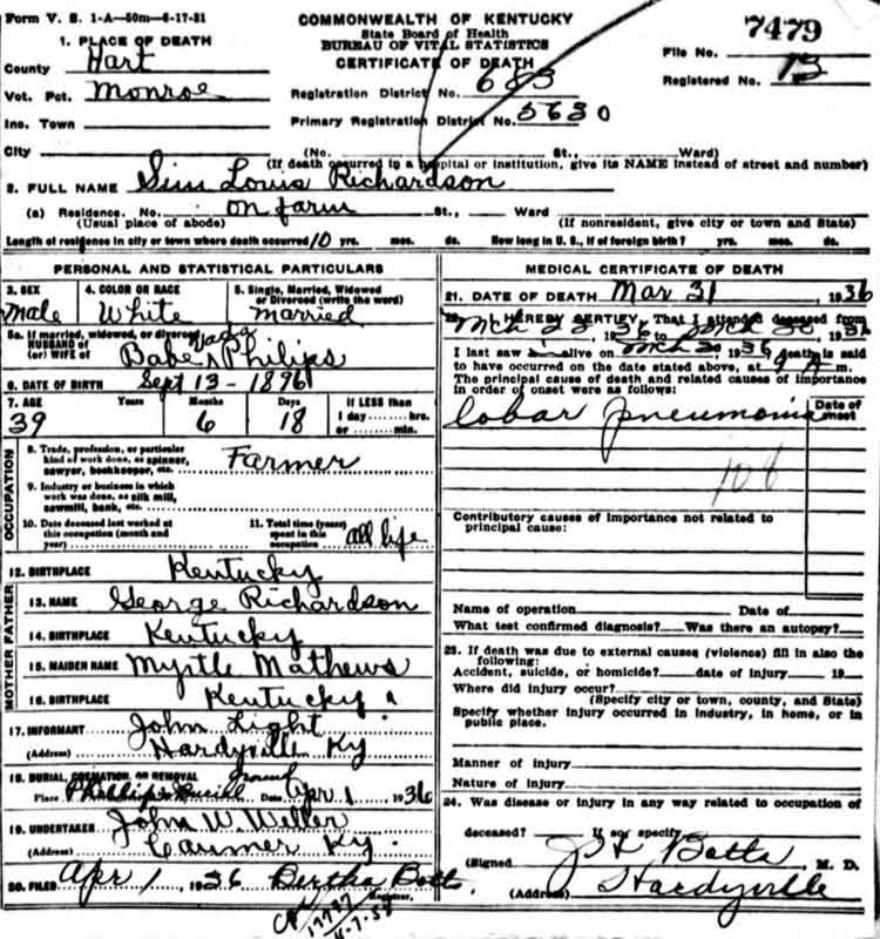 Form V. S. 1-A—50m—6-17-31
COMMONWEALTH OF KENTUCKY
State Board of Health
BUREAU OF VITAL STATISTICS
CERTIFICATE OF DEATH
7479
File No.
Registered No. 13
1. PLACE OF DEATH
County Hart
Vot. Pct. Monroe
Inc. Town
City
Registration District No. 683
Primary Registration District No. 5630
(No. St., Ward)
(If death occurred in a hospital or institution, give its NAME instead of street and number)
2. FULL NAME Sim Louis Richardson
(a) Residence. No. on farm St., Ward
(Usual place of abode) (If nonresident, give city or town and State)
Length of residence in city or town where death occurred 10 yrs. mos. ds. How long in U. S., if of foreign birth? yrs. mos. ds.
PERSONAL AND STATISTICAL PARTICULARS
3. SEX 4. COLOR OR RACE 5. Single, Married, Widowed
or Divorced (write the word)
Male White married
5a. If married, widowed, or divorced
HUSBAND of
(or) WIFE of Babe Philips
6. DATE OF BIRTH Sept 13 - 1896
7. AGE Years Months Days If LESS than
1 day hrs.
or min.
39 6 18
OCCUPATION
8. Trade, profession, or particular
kind of work done, as spinner,
sawyer, bookkeeper, etc. Farmer
9. Industry or business in which
work was done, as silk mill,
sawmill, bank, etc.
10. Date deceased last worked at
this occupation (month and
year)
11. Total time (years)
spent in this
occupation all life
12. BIRTHPLACE Kentucky
FATHER
13. NAME George Richardson
14. BIRTHPLACE Kentucky
MOTHER
15. MAIDEN NAME Myrtle Mathews
16. BIRTHPLACE Kentucky
17. INFORMANT John Light
(Address) Hardyville Ky
18. BURIAL, CREMATION, OR REMOVAL
Place Date Apr 1 1936
19. UNDERTAKER John W. Weller
(Address) Ky.
20. FILED Apr 1, 1936 Bertha Botts,
Registrar.
MEDICAL CERTIFICATE OF DEATH
21. DATE OF DEATH Mar 31, 1936
22. I HEREBY CERTIFY, That I attended deceased from
Mch 1936 to Mch 30 1936
I last saw alive on Mch 30, 1936 death is said
to have occurred on the date stated above, at 9 A m.
The principal cause of death and related causes of importance
in order of onset were as follows:
Date of
onset
lobar pneumonia
108
Contributory causes of importance not related to
principal cause:
Name of operation Date of
What test confirmed diagnosis? Was there an autopsy?
23. If death was due to external causes (violence) fill in also the
following:
Accident, suicide, or homicide? date of injury 19
Where did injury occur?
(Specify city or town, county, and State)
Specify whether injury occurred in industry, in home, or in
public place.
Manner of injury
Nature of injury
24. Was disease or injury in any way related to occupation of
deceased? If so, specify
(Signed Botts, M. D.
(Address) Hardyville